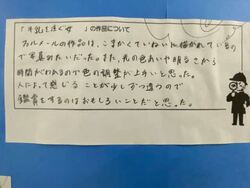 「牛乳を注ぐ女」の作品について
フェルメールの作品は、こまかくていねいに描かれているの
で写真みたいだった。また、光の色あいや明るさから
時間がわかるので色の調整が上手いと思った。
人によって感じることが少しずつ違うので
鑑賞をするのはおもしろいことだと思った。